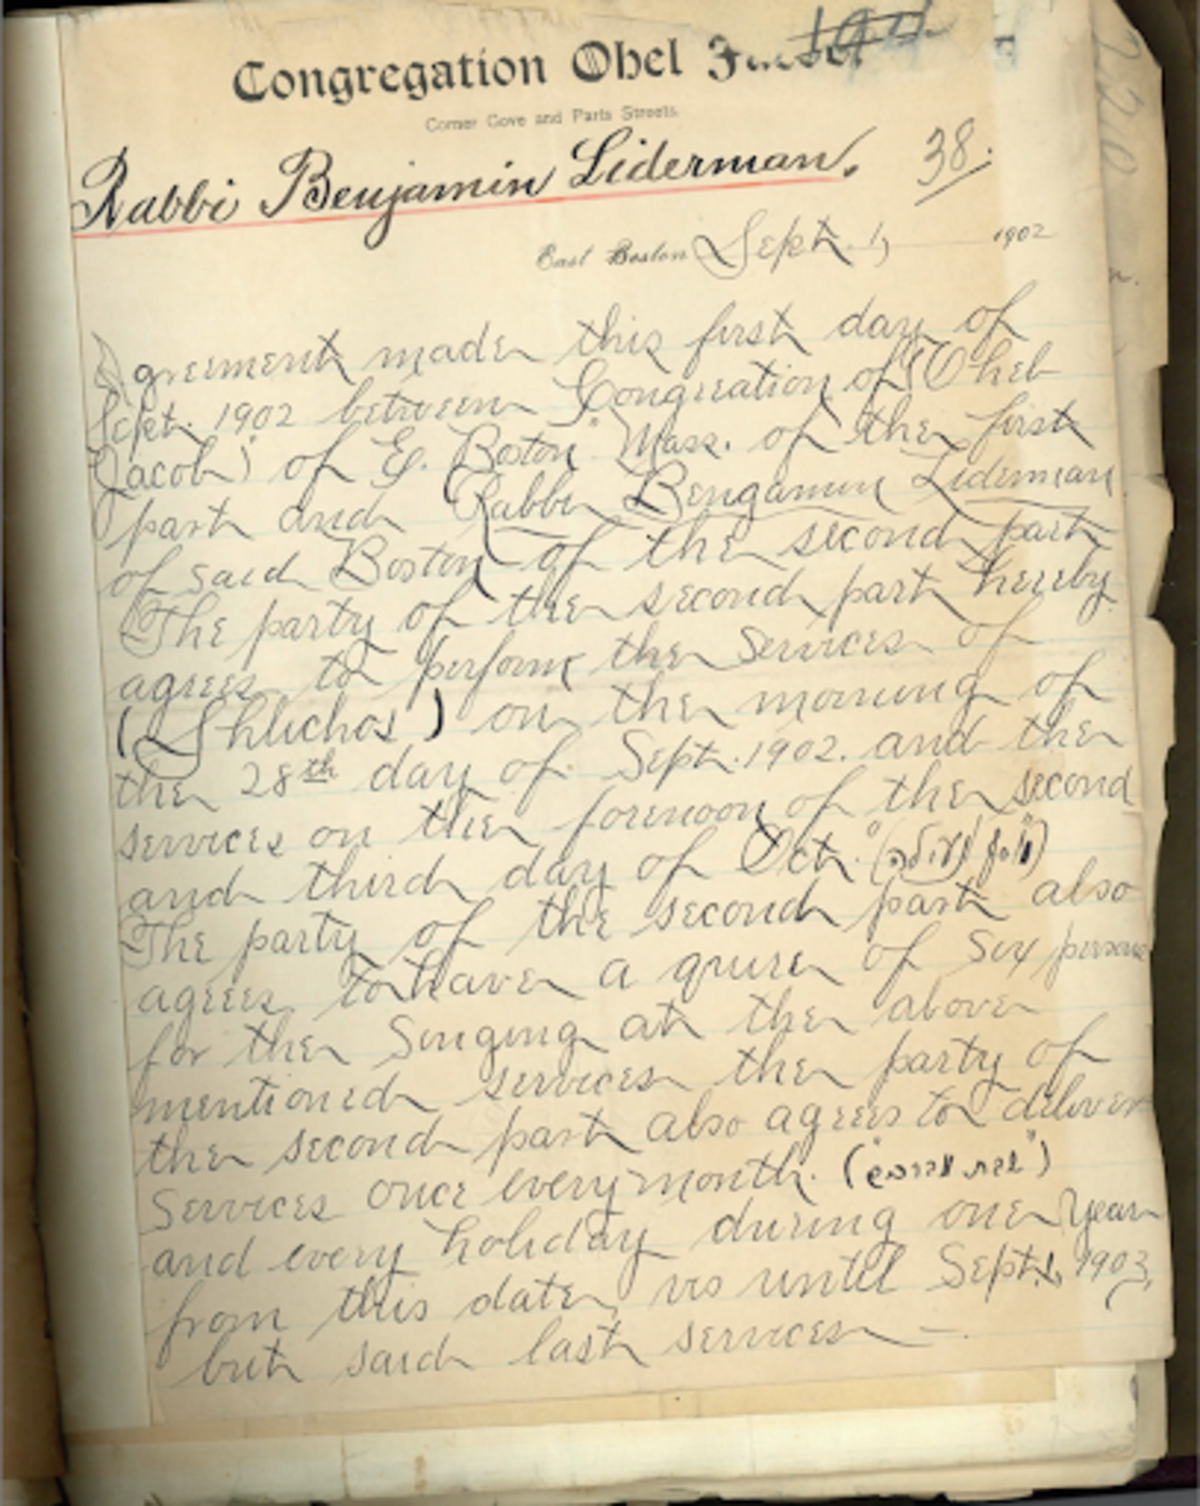 Congregation Ohel
Corner Cove and Paris Streets.
Rabbi Benjamin Liderman.
38.
East Boston Sept. 1, 1902
Agreement made this first day of
Sept. 1902 between Congreation of "Ohel
Jacob" of E. Boston Mass. of the first
part and Rabbi Bengamin Liderman
of said Boston of the second part
The party of the second part hereby
agrees to perform the services of
(Shlichos) on the morning of
the 28th day of Sept. 1902. and the
services on the forenoon of the second
and third day of Oct.
The party of the second part also
agrees to have a quire of six persons
for the Singing at the above
mentioned services the party of
the second part also agrees to deliver
Services once every month.
and every holiday during one Year
from this date, vis until Sept. 1, 1903,
but said last services —
2210